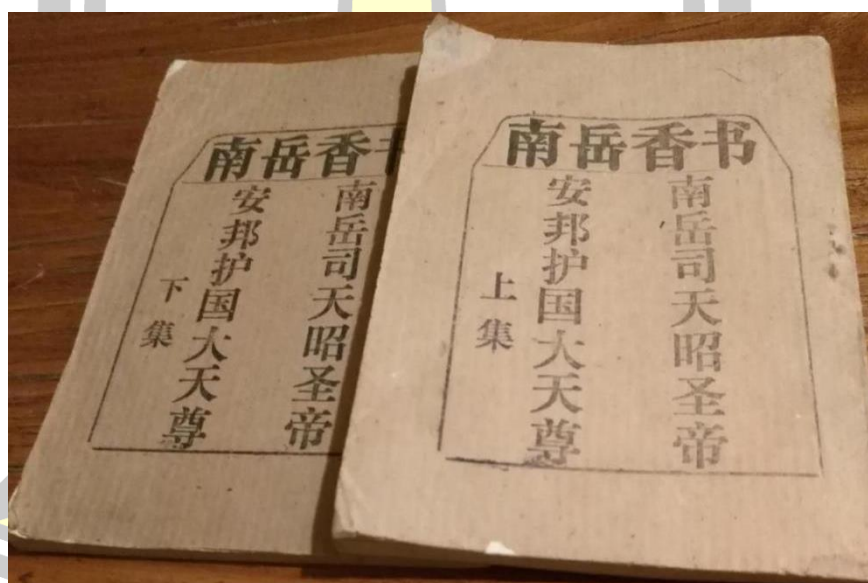 南岳香
南岳司天昭圣帝
安邦护国大天尊
下集
南岳香书
南岳司天昭圣帝
安邦护国大天尊
上集